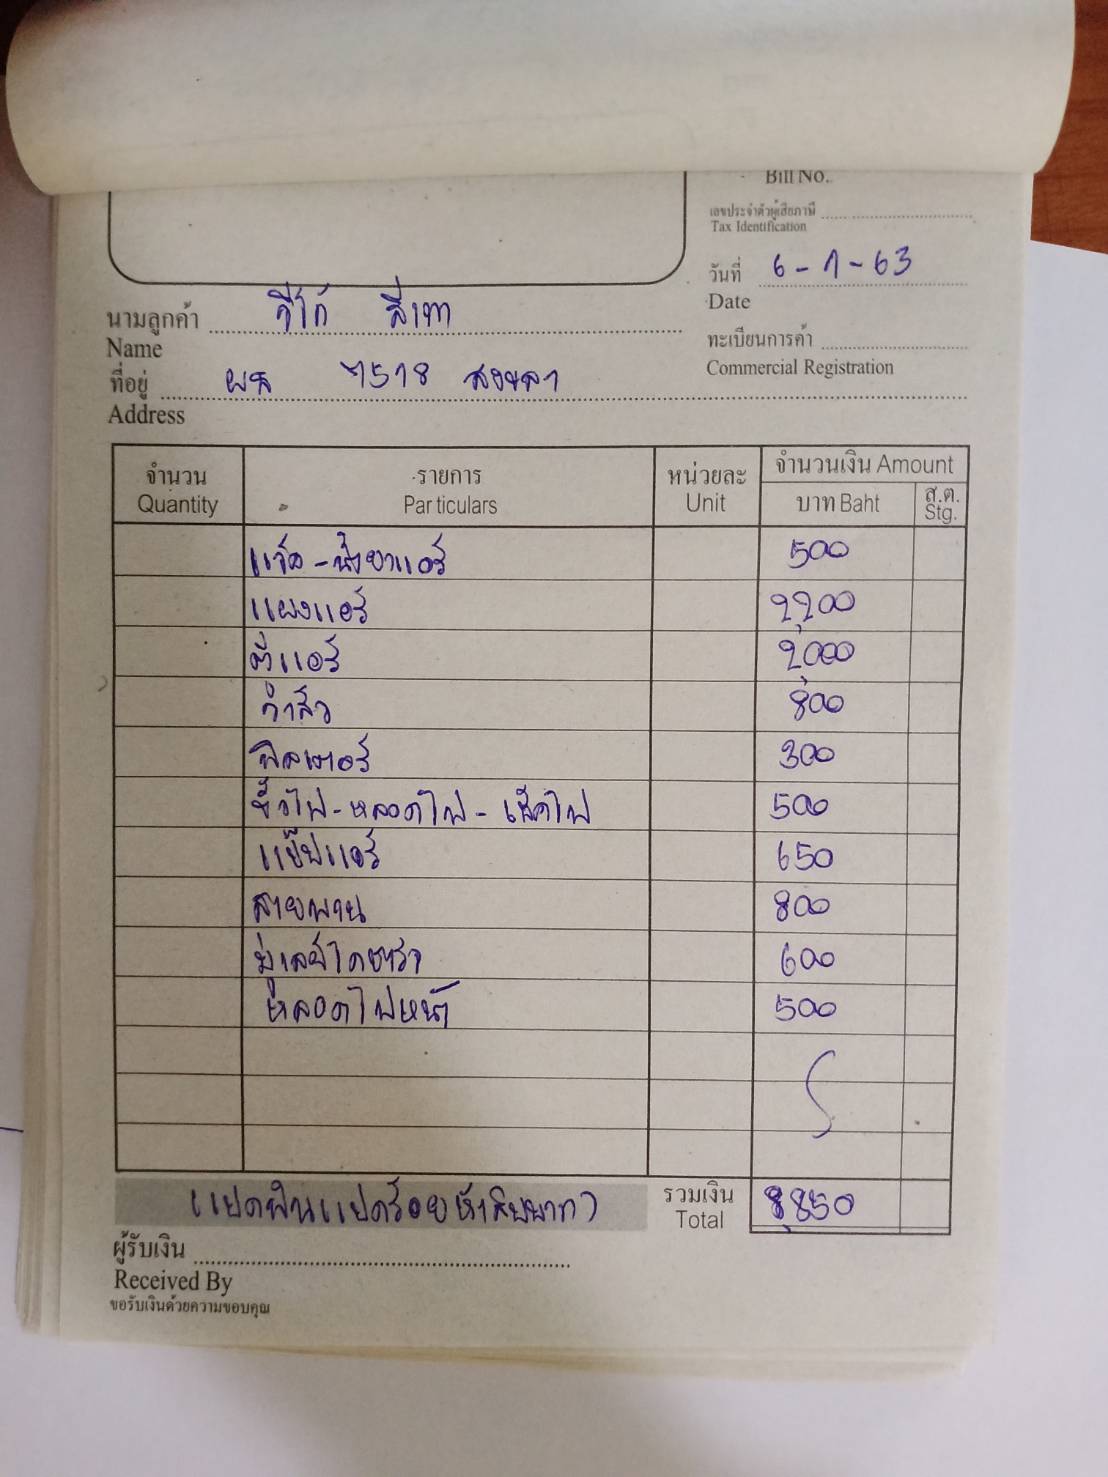 Bill No.
เลขประจำตัวผู้เสียภาษี
Tax Identification
วันที่ 6-1-63
Date
นามลูกค้า วีโก้ สี่เทา
Name
ทะเบียนการค้า
Commercial Registration
ที่อยู่ ผล 7518 สงขลา
Address
จำนวน รายการ หน่วยละ จำนวนเงิน Amount
Quantity Particulars Unit บาท Baht ส.ต. Stg.
แว๊ค-น้ำยาแอร์ 500
แผงแอร์ 2,200
ตู้แอร์ 2,000
800
ฟิลเตอร์ 300
ขั้วไฟ-หลอดไฟ-เช็คไฟ 500
แป๊ปแอร์ 650
สายพาน 800
มู่เลย์ไดชาร์จ 600
หลอดไฟหน้า 500
(แปดพันแปดร้อยห้าสิบบาท) รวมเงิน 8,850
Total
ผู้รับเงิน
Received By
ขอรับเงินด้วยความขอบคุณ